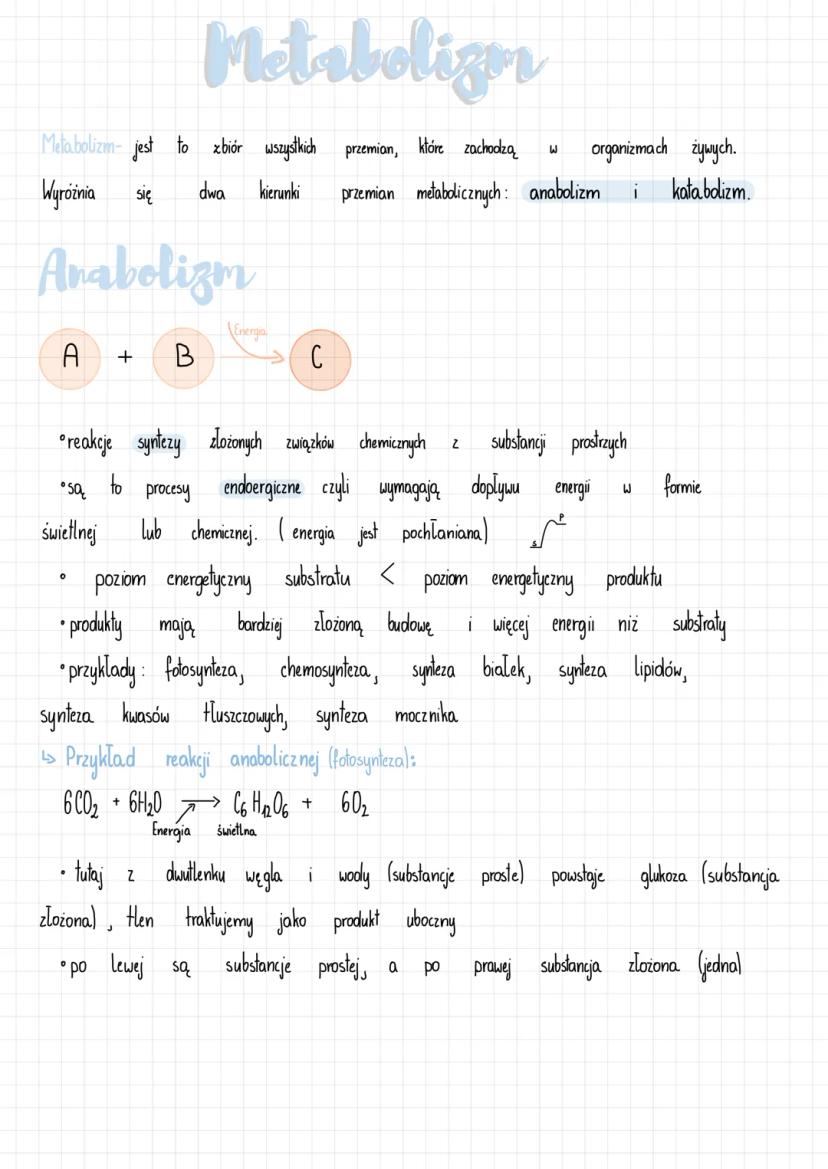 Metabolizm
Metabolizm- jest to zbiór wszystkich przemian, które zachodzą w organizmach żywych.
Wyróżnia się dwa kierunki przemian metabolicznych: anabolizm i katabolizm.
Anabolizm
Energia
A + B → C
•reakcje syntezy złożonych związków chemicznych z substancji prostrzych
•są to procesy endoergiczne czyli wymagają dopływu energii w formie
świetlnej lub chemicznej. (energia jest pochłaniana) s p
• poziom energetyczny substratu < poziom energetyczny produktu
•produkty mają bardziej złożoną budowę i więcej energii niż substraty
•przykłady: fotosynteza, chemosynteza, synteza białek, synteza lipidów,
synteza kwasów tłuszczowych, synteza mocznika
↳ Przykład reakcji anabolicznej (fotosynteza):
6CO₂ + 6H₂O → C₆H₁₂O₆ + 6O₂
Energia świetlna
• tutaj z dwutlenku węgla i wody (substancje proste) powstaje glukoza (substancja
złożona), tlen traktujemy jako produkt uboczny
•po lewej są substancje prostej, a po prawej substancja złożona (jedna)